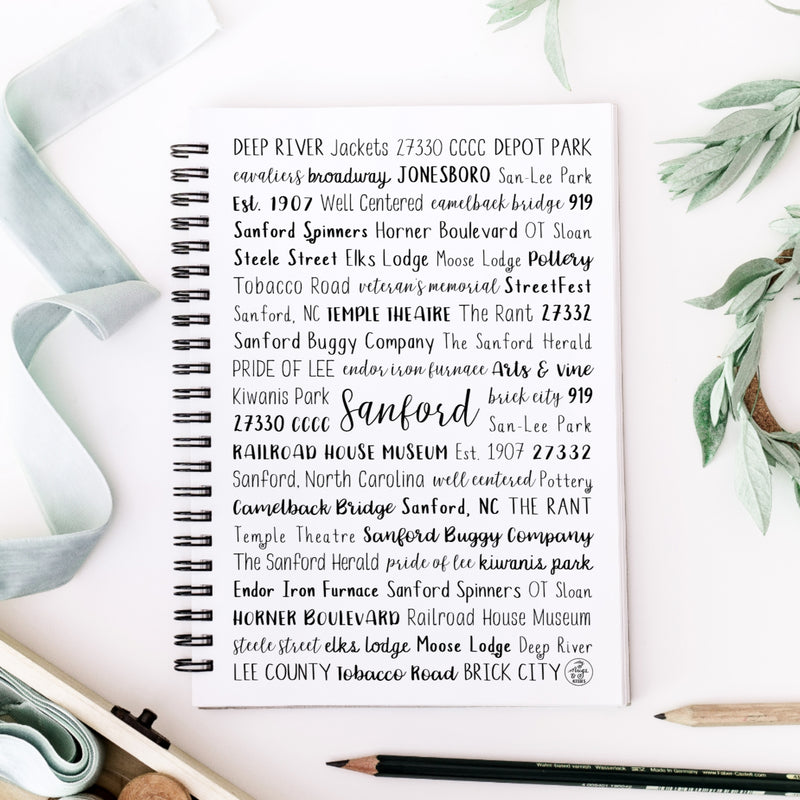 DEEP RIVER Jackets 27330 CCCC DEPOT PARK
cavaliers broadway JONESBORO San-Lee Park
Est. 1907 Well Centered camelback bridge 919
Sanford Spinners Horner Boulevard OT Sloan
Steele Street Elks Lodge Moose Lodge Pottery
Tobacco Road veteran's memorial StreetFest
Sanford, NC TEMPLE THEATRE The Rant 27332
Sanford Buggy Company The Sanford Herald
PRIDE OF LEE endor iron furnace Arts & vine
Kiwanis Park brick city 919
Sanford
27330 CCCC San-Lee Park
RAILROAD HOUSE MUSEUM Est. 1907 27332
Sanford, North Carolina well centered Pottery
Camelback Bridge Sanford, NC THE RANT
Temple Theatre Sanford Buggy Company
The Sanford Herald pride of lee kiwanis park
Endor Iron Furnace Sanford Spinners OT Sloan
HORNER BOULEVARD Railroad House Museum
steele street elks lodge Moose Lodge Deep River
LEE COUNTY Tobacco Road BRICK CITY
Made in Germany www.Faber-Castell